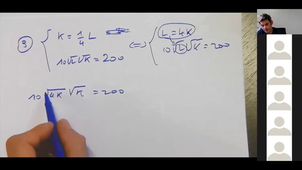 ③ { K = 1/4 L <=> { L = 4K
10√L √K = 200 10√L √K = 200
10 √4K √K = 200